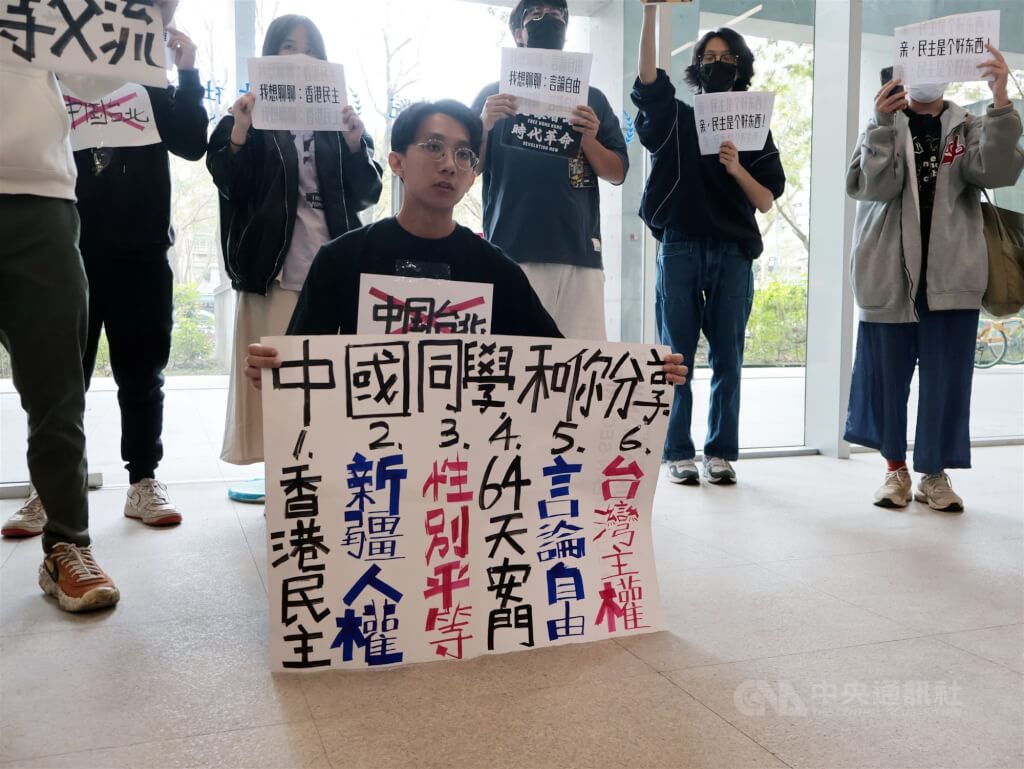 等交流
中国台北
我想聊聊：香港民主
我想聊聊：言論自由
時代革命
FREE HONG KONG
REVOLUTION NOW
亲，民主是个好东西！
亲，民主是个好东西！
中国台北
中國同學和你分享
1. 香港民主
2. 新疆人權
3. 性別平等
4. 64天安門
5. 言論自由
6. 台灣主權
CNA 中央通訊社